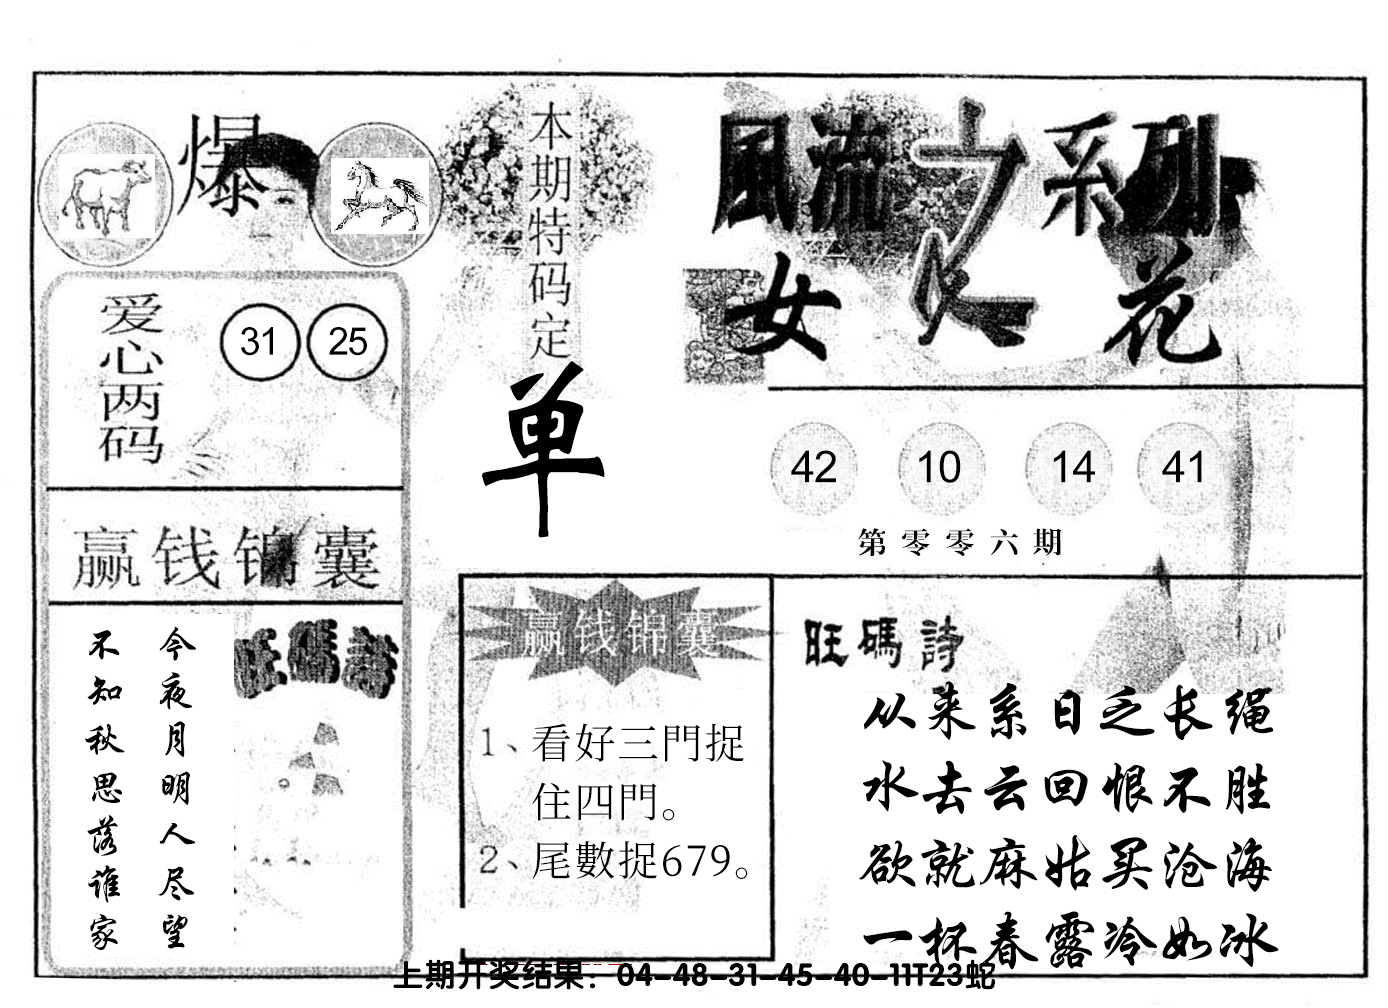 爆
爱心两码
31 25
赢钱锦囊
今夜月明人尽望
不知秋思落谁家
旺碼詩
本期特码定
单
風流之系列
女人花
42 10 14 41
第零零六期
赢钱锦囊
1、看好三門捉
住四門。
2、尾數捉679。
旺碼詩
从来系日乏长绳
水去云回恨不胜
欲就麻姑买沧海
一杯春露冷如冰
上期开奖结果：04-48-31-45-40-11T23蛇